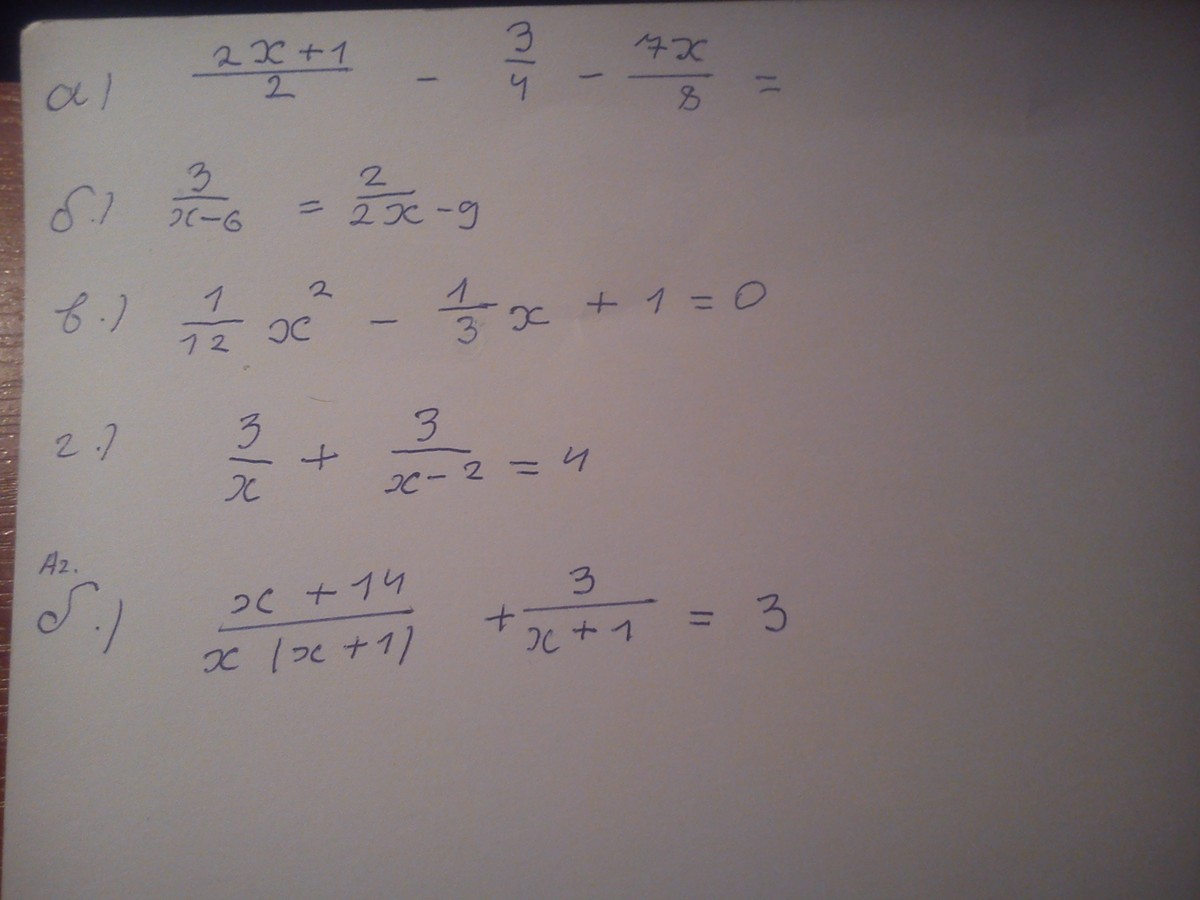 а) (2x+1)/2 - 3/4 - 7x/8 =
б.) 3/(x-6) = 2/(2x-9)
в.) 1/12 x² - 1/3 x + 1 = 0
г.) 3/x + 3/(x-2) = 4
Аг.
б.) (x+14)/(x(x+1)) + 3/(x+1) = 3